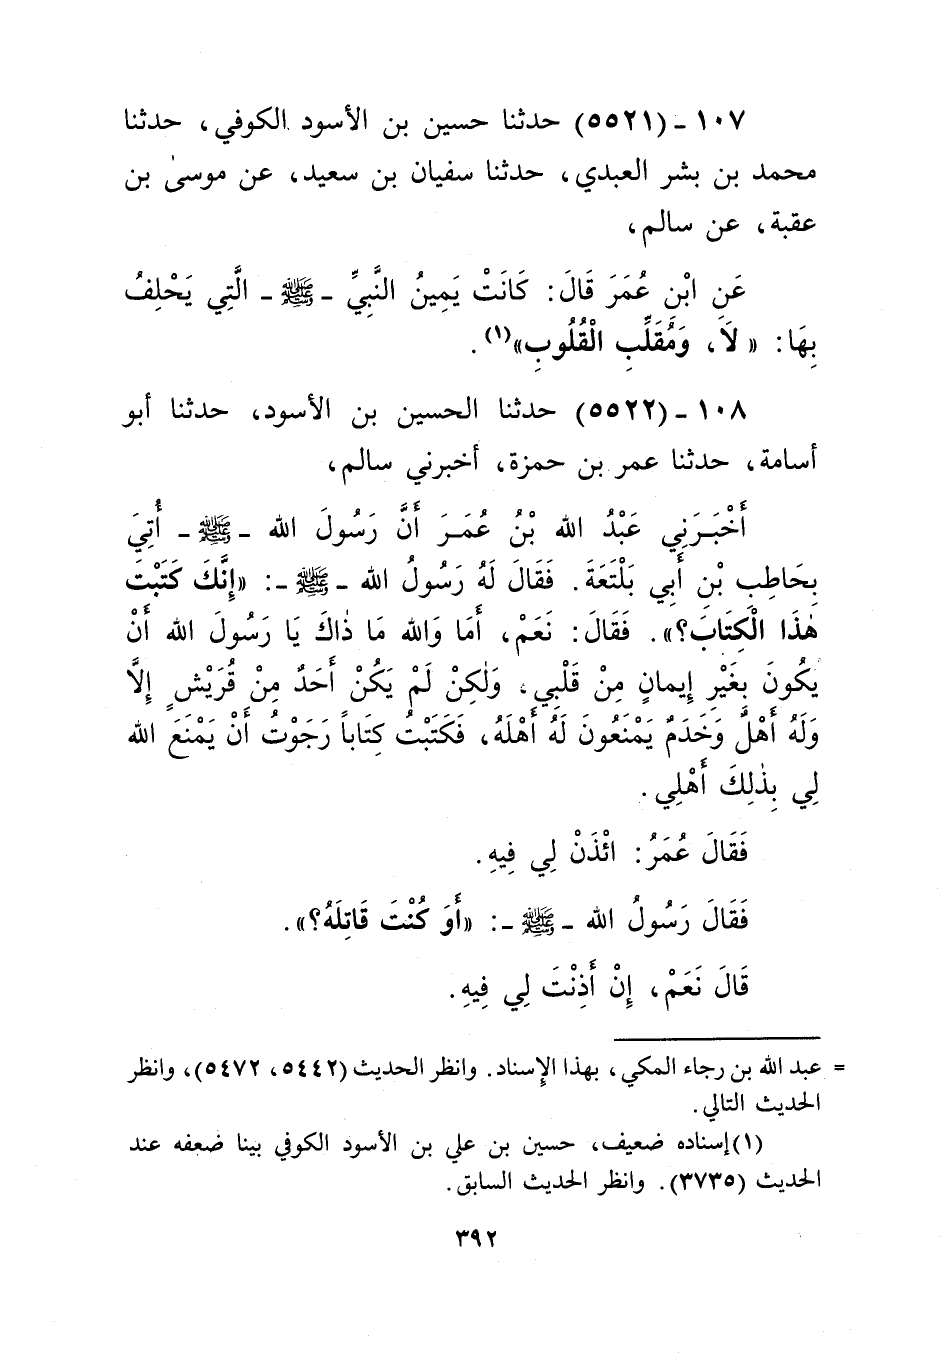 ١٠٧ - (٥٥٢١) حدثنا حسين بن الأسود الكوفي، حدثنا
محمد بن بشر العبدي، حدثنا سفيان بن سعيد، عن موسىٰ بن
عقبة، عن سالم،
عَنِ ابْنِ عُمَرَ قَالَ: كَانَتْ يَمِينُ النَّبِيِّ - ﷺ - الَّتِي يَحْلِفُ
بِهَا: « لاَ، وَمُقَلِّبِ الْقُلُوبِ»(١).
١٠٨ - (٥٥٢٢) حدثنا الحسين بن الأسود، حدثنا أبو
أسامة، حدثنا عمر بن حمزة، أخبرني سالم،
أَخْبَرَنِي عَبْدُ الله بْنُ عُمَرَ أَنَّ رَسُولَ الله - ﷺ - أُتِيَ
بِحَاطِبِ بْنِ أَبِي بَلْتَعَةَ. فَقَالَ لَهُ رَسُولُ الله - ﷺ -: «إِنَّكَ كَتَبْتَ
هٰذَا الْكِتَابَ؟». فَقَالَ: نَعَمْ، أَمَا وَالله مَا ذٰاكَ يَا رَسُولَ الله أَنْ
يَكُونَ بِغَيْرِ إِيمانٍ مِنْ قَلْبِي، وَلٰكِنْ لَمْ يَكُنْ أَحَدٌ مِنْ قُرَيْشٍ إِلَّا
وَلَهُ أَهْلٌ وَخَدَمٌ يَمْنَعُونَ لَهُ أَهْلَهُ، فَكَتَبْتُ كِتَاباً رَجَوْتُ أَنْ يَمْنَعَ الله
لِي بِذٰلِكَ أَهْلِي.
فَقَالَ عُمَرُ: ائْذَنْ لِي فِيهِ.
فَقَالَ رَسُولُ الله - ﷺ -: «أَوَ كُنْتَ قَاتِلَهُ؟».
قَالَ نَعَمْ، إِنْ أَذِنْتَ لِي فِيهِ.
= عبد الله بن رجاء المكي، بهذا الإسناد. وانظر الحديث (٥٤٤٢، ٥٤٧٢)، وانظر
الحديث التالي.
(١) إسناده ضعيف، حسين بن علي بن الأسود الكوفي بينا ضعفه عند
الحديث (٣٧٣٥). وانظر الحديث السابق.
٣٩٢